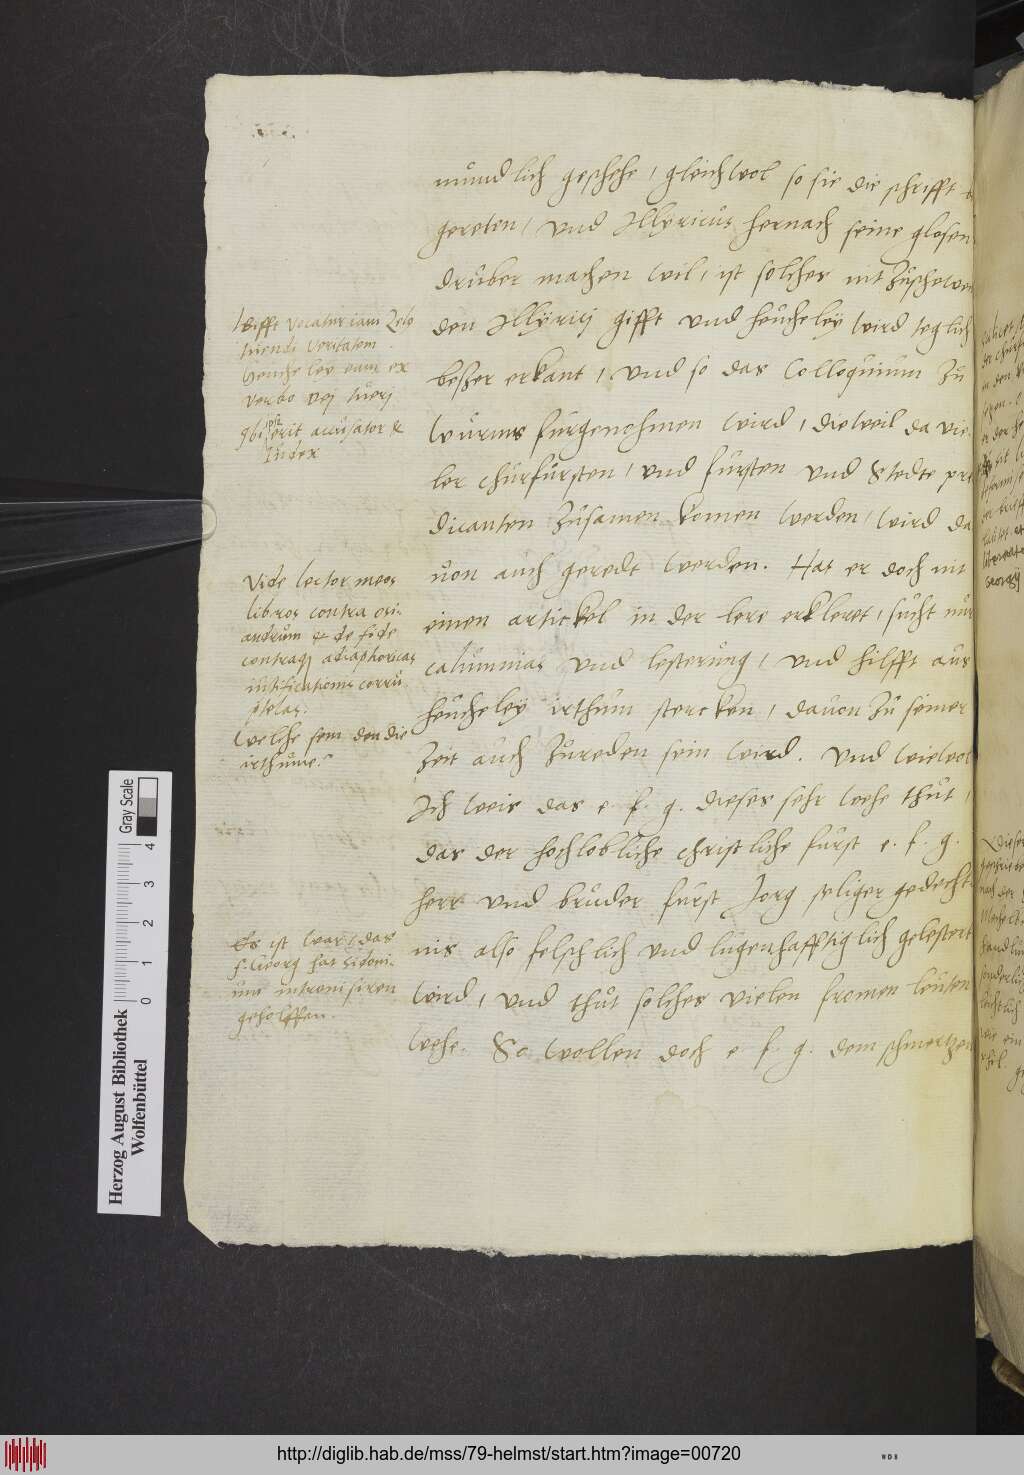 mundlich geschehe / gleichwol so sie die schrifft
gereten / und Illyricus hernach seine glosen
druber machen wil, ist solches nit zuschewen
den Illyrici gifft und heucheley wird teglich
beßer erkant / und so das Colloquium zu
Wurms furgenohmen wird / dieweil da vie-
ler churfursten / und fursten und Stedte pre
dicanten zusamen komen werden / wird da
von auch geredt werden. Hat er doch nit
einen artickel in der lere erkleret, sucht nur
calumnias und lesterung / und hilfft aus
heucheley irthum stercken / davon zu seiner
zeit auch zureden sein wird. Und wiewol
Ich weis das e. f. g. dieses sehr wehe thut,
das der hochlobliche christliche furst e. f. g.
herr und bruder furst Jorg seliger gedecht
nis also felschlich und lugenhafftiglich gelestert
wird, und thut solches vielen fromen leuten
wehe. So wollen doch e. f. g. dem schmertzen
Gifft vocatur iam Zelo
tuendi veritatem
Heucheley eam ex
verbo Dei tueri
ipse erit accusator &
Iudex
Vide lector meos
libros contra Osi-
andrum & de fide
contraq adiaphoricas
iustificationis corru
ptelas.
Welche sein den die
irthume?
Es ist war / das
f. Georg hat Sidoni-
um introni siren
geholffen.
Herzog August Bibliothek
Wolfenbüttel
Gray Scale
0 1 2 3 4
http://diglib.hab.de/mss/79-helmst/start.htm?image=00720
WDB